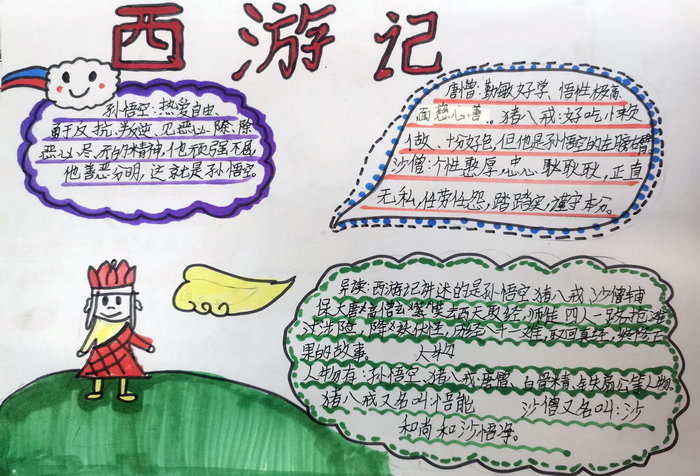 西游记
孙悟空:热爱自由、
勇于反抗、叛逆,见恶必除、除
恶必尽、的精神,他顽强不屈,
他善恶分明,这就是孙悟空。
唐僧:勤敏好学、悟性极高
面慈心善。猪八戒:好吃
做、十分好色,但他是孙悟空的左膀右臂
沙僧:个性憨厚,忠心耿耿,正直
无私,任劳任怨,踏踏实,谨守本分。
导读:西游记讲述的是孙悟空猪八戒沙僧辅
保大唐高僧玄奘去西天取经,师徒四人一路抢滩
涉险,降妖伏,历经八十一难,取回真经,终修正
果的故事。 人物
人物有:孙悟空、猪八戒、唐僧、白骨精、等人物。
猪八戒又名叫悟能 沙僧又名叫:沙
和尚和沙悟净。